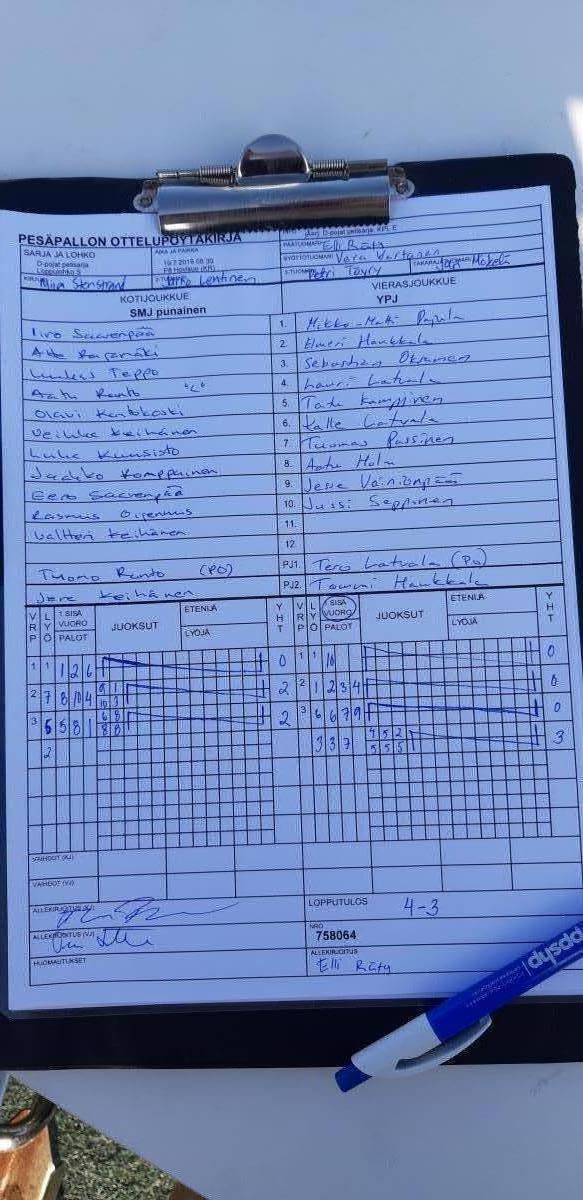 PESÄPALLON OTTELUPÖYTÄKIRJA
D-pojat pelisarja KPL E
SARJA JA LOHKO
D-pojat pelisarja
Loppulohko S
AIKA JA PAIKKA
19.7.2019 08:30
PÄÄTUOMARI Elli Räty
SYÖTTÖTUOMARI Vera Vartanen
Mira Stenstrand
Lehtinen
Petri Töyry
TAKARAJA Mäkelä
KOTIJOUKKUE
SMJ punainen
VIERASJOUKKUE
YPJ
Iiro Saarenpää
1. Mikko-Matti Pajula
Atte Rajamäki
2. Elmeri Haukkala
Luukas Teppo
3. Sebastian
Aatu Ranto "C"
4. Lauri Latvala
Olavi
5. Tatu Kamppinen
Veikka Keihänen
6. Kalle Latvala
Luka Kuusisto
7. Tuomas Passinen
Jaakko Komppainen
8. Aatu Holm
Eero Saarenpää
9. Jesse Väinionpää
Rasmus
10. Jussi Seppinen
Valtteri Keihänen
11.
12.
Tuomo Ranto (PO)
PJ1. Tero Latvala (PO)
Jere Keihänen
PJ2. Tommi Haukkala
VRP LYÖ 1 SISÄ VUORO PALOT JUOKSUT ETENIJÄ LYÖJÄ YHT
VRP LYÖ 1 SISÄ VUORO PALOT JUOKSUT ETENIJÄ LYÖJÄ YHT
1 1 1 2 6 0 1 1 10 0
2 7 8 10 4 9 1 10 3 2 2 1 2 3 4 0
3 5 5 8 1 6 8 8 8 2 3 6 6 7 9 0
2 3 3 7 4 5 2 5 5 5 3
VAIHDOT (KJ)
VAIHDOT (VJ)
ALLEKIRJOITUS (KJ)
LOPPUTULOS 4-3
ALLEKIRJOITUS (VJ)
NRO
758064
HUOMAUTUKSET
ALLEKIRJOITUS
Elli Räty
dysdd